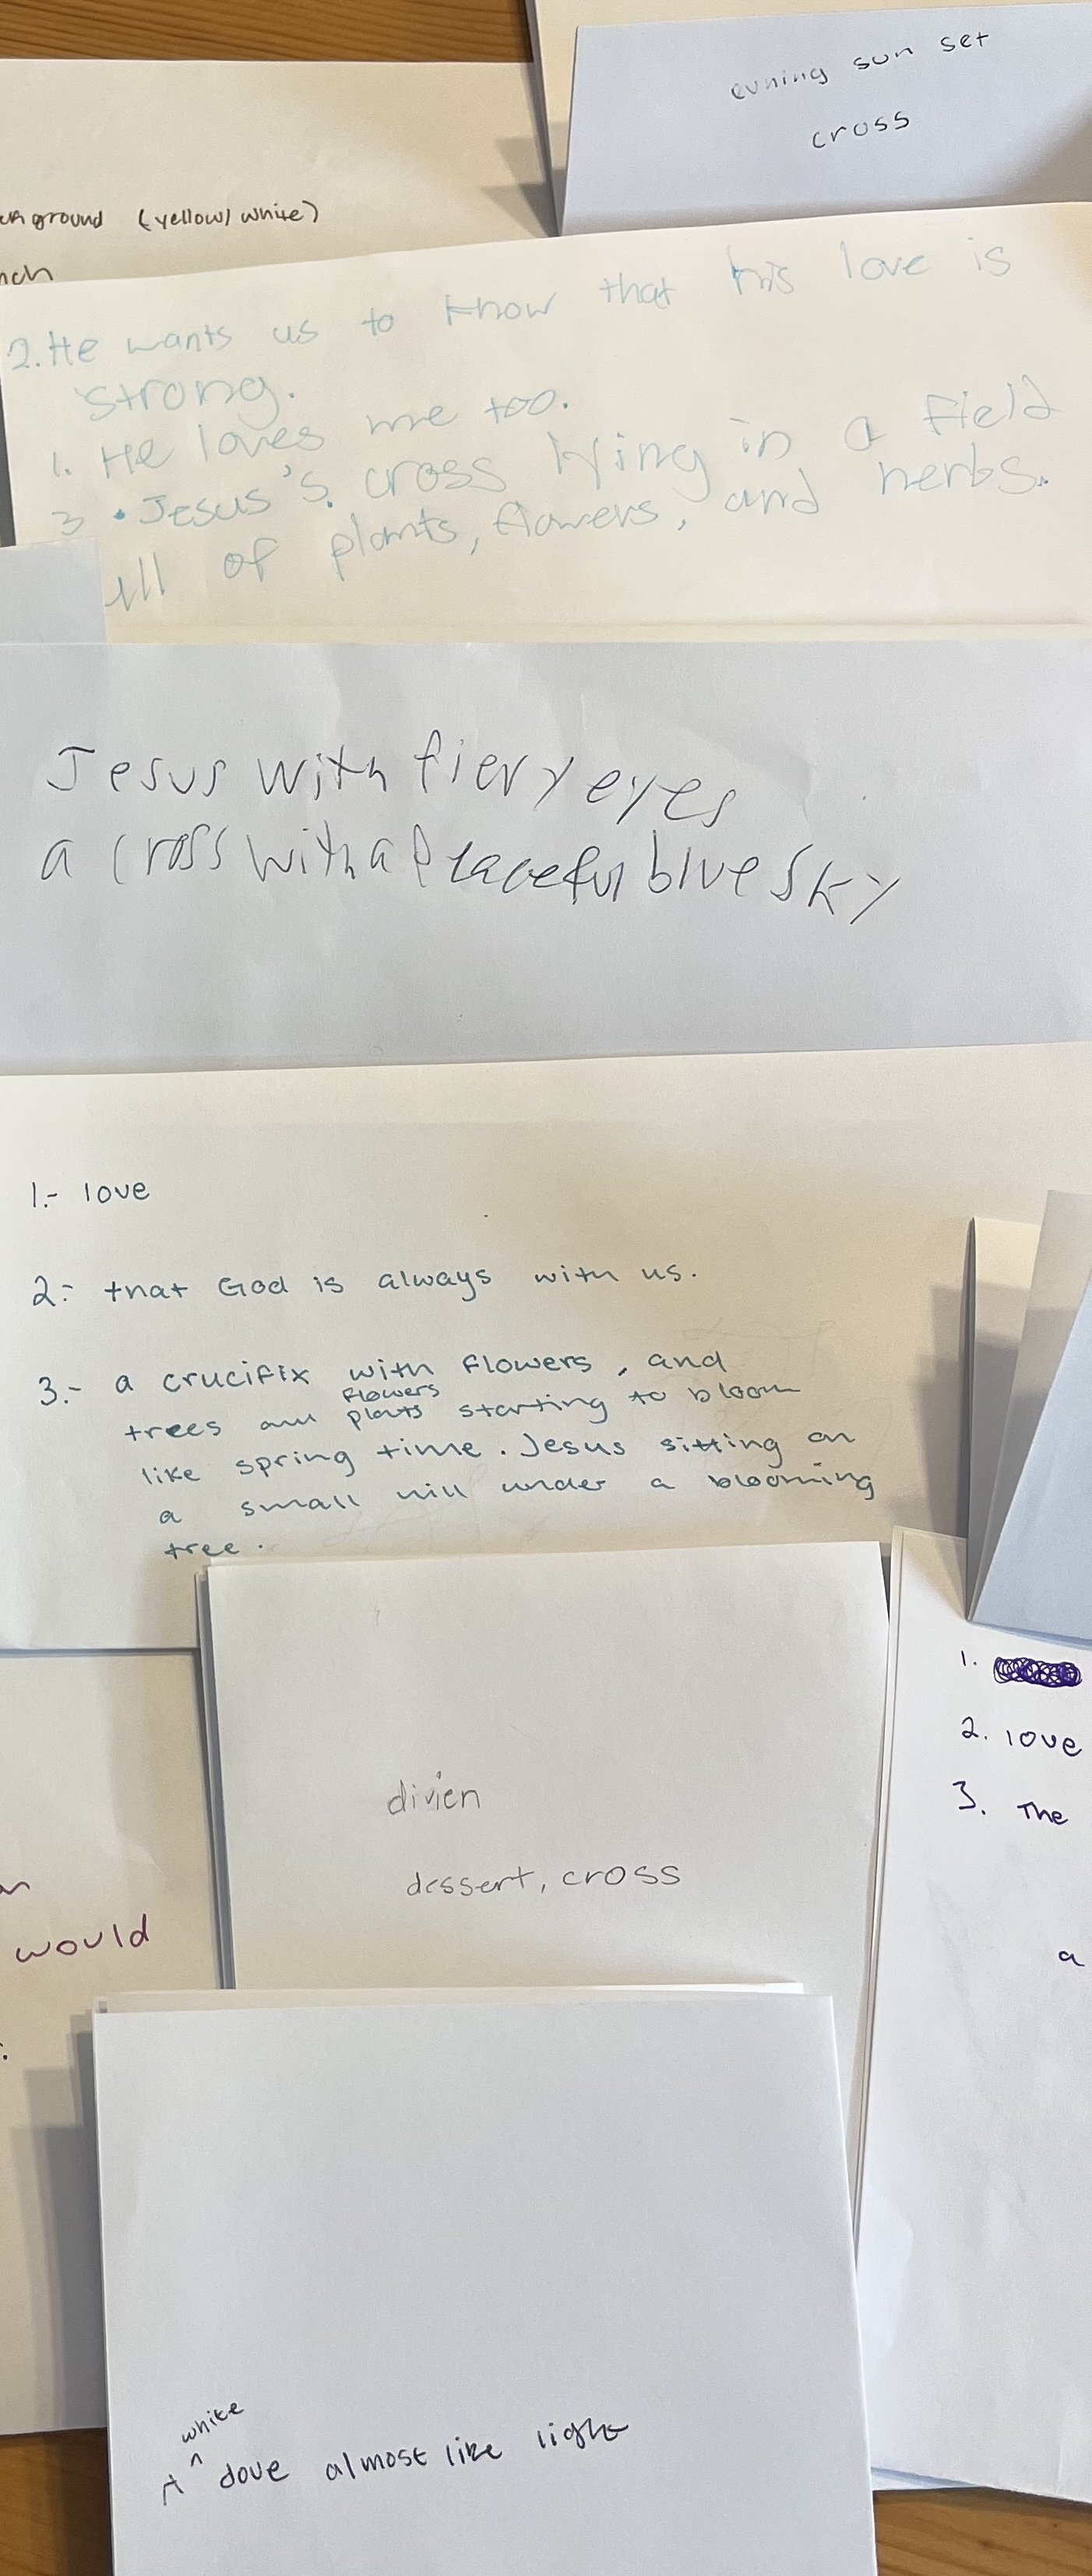 evning sun set
cross
ground (yellow/white)
2. He wants us to know that his love is
strong.
1. He loves me too.
3 • Jesus's cross lying in a field
of plants, flowers, and herbs.
Jesus with fiery eyes
a cross with a peaceful blue sky
1.- love
2.- that God is always with us.
3.- a crucifix with flowers, and
flowers
trees and plants starting to bloom
like spring time. Jesus sitting on
a small hill under a blooming
tree.
1.
2. love
3. The
a
divien
dessert, cross
would
white
A ^ dove almost like light